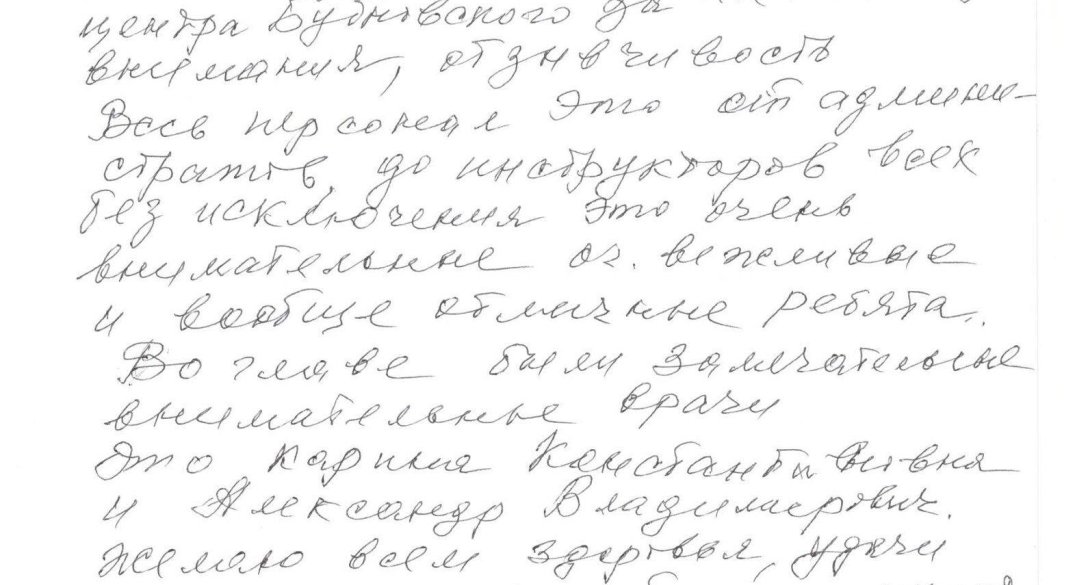 центра Бубновского за
внимания, отзывчивость
Весь персонал это от админи-
стратов, до инструкторов всех
без исключения это очень
внимательные оч. вежливые
и вообще отличные ребята.
Во главе были замечательные
внимательные врачи
это Карина Константиновна
и Александр Владимирович.
желаю всем здоровья, удачи